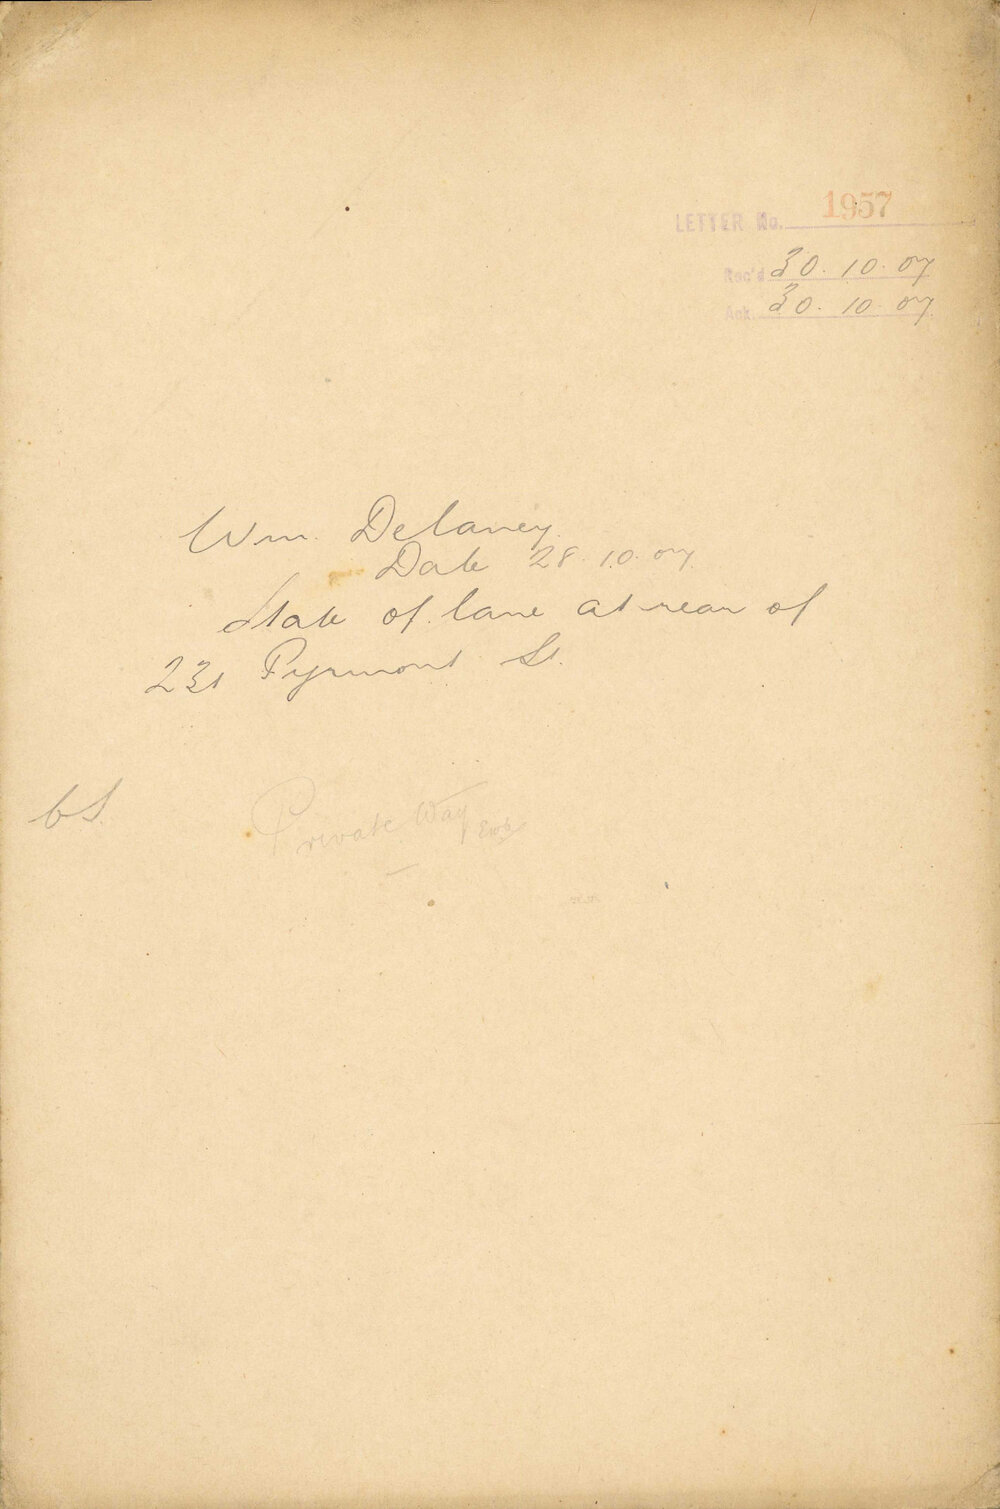 LETTER No. 1957
Rec'd 30.10.07
Ack. 30.10.07
Wm. Delaney
Date 28.10.07
State of lane at rear of
231 Pyrmont St.
CS.
Private Way